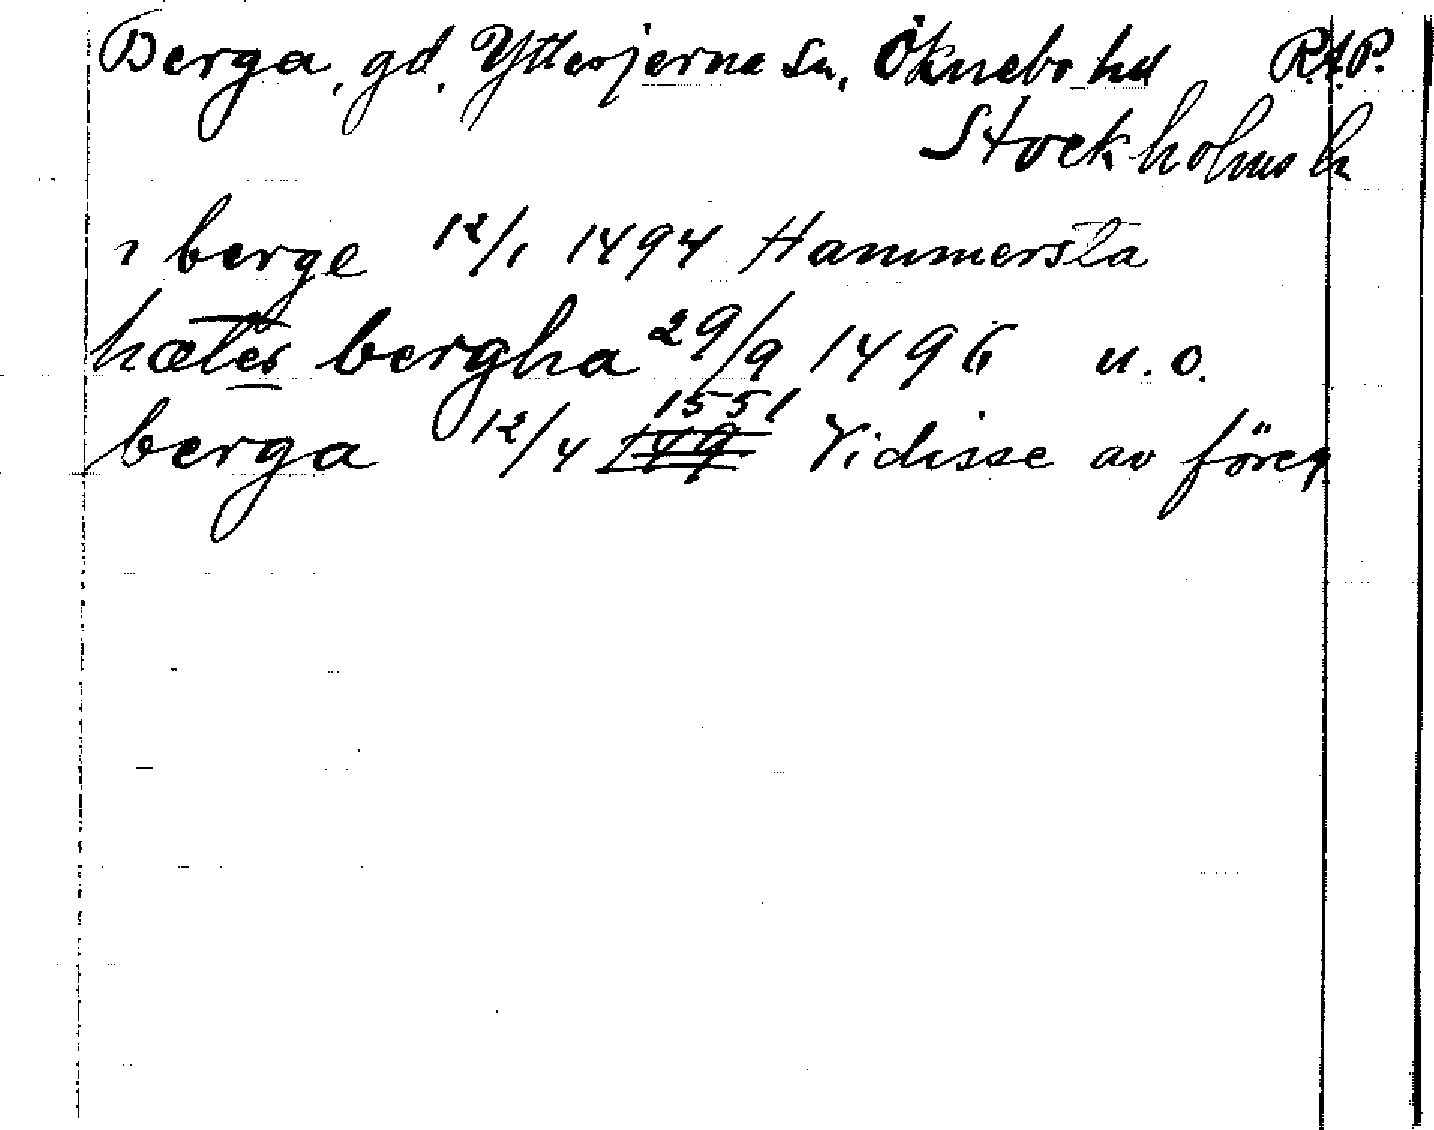 Berga, gd. Ytterjerna sn, Öknebo hd R.A.P.
Stockholms ln
i berge 12/1 1494 Hammersta
hætes bergha 29/9 1496 u.o.
berga 12/4 149 1551 Vidisse av föreg